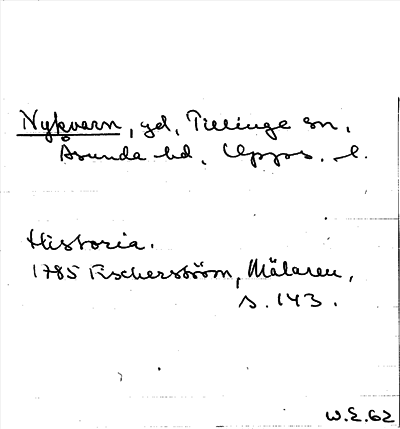 Nykvarn, gd, Tillinge sn,
Åsunda hd, Upps. l.
Historia.
1785 Fischerström, Mälaren,
s. 143.
W.E.62